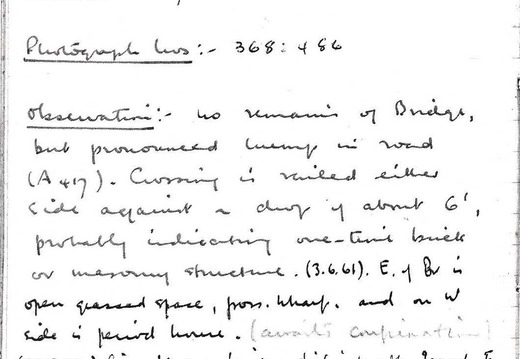 Photograph Nos :- 368 : 486
Observation :- no remains of Bridge,
but pronounced hump in road
(A417). Crossing is railed either
side against a drop of about 6',
probably indicating one-time brick
or masonry structure. (3.6.61). E. of Br is
open grassed space, poss. wharf. and on W
side is period house. (awaits confirmation)